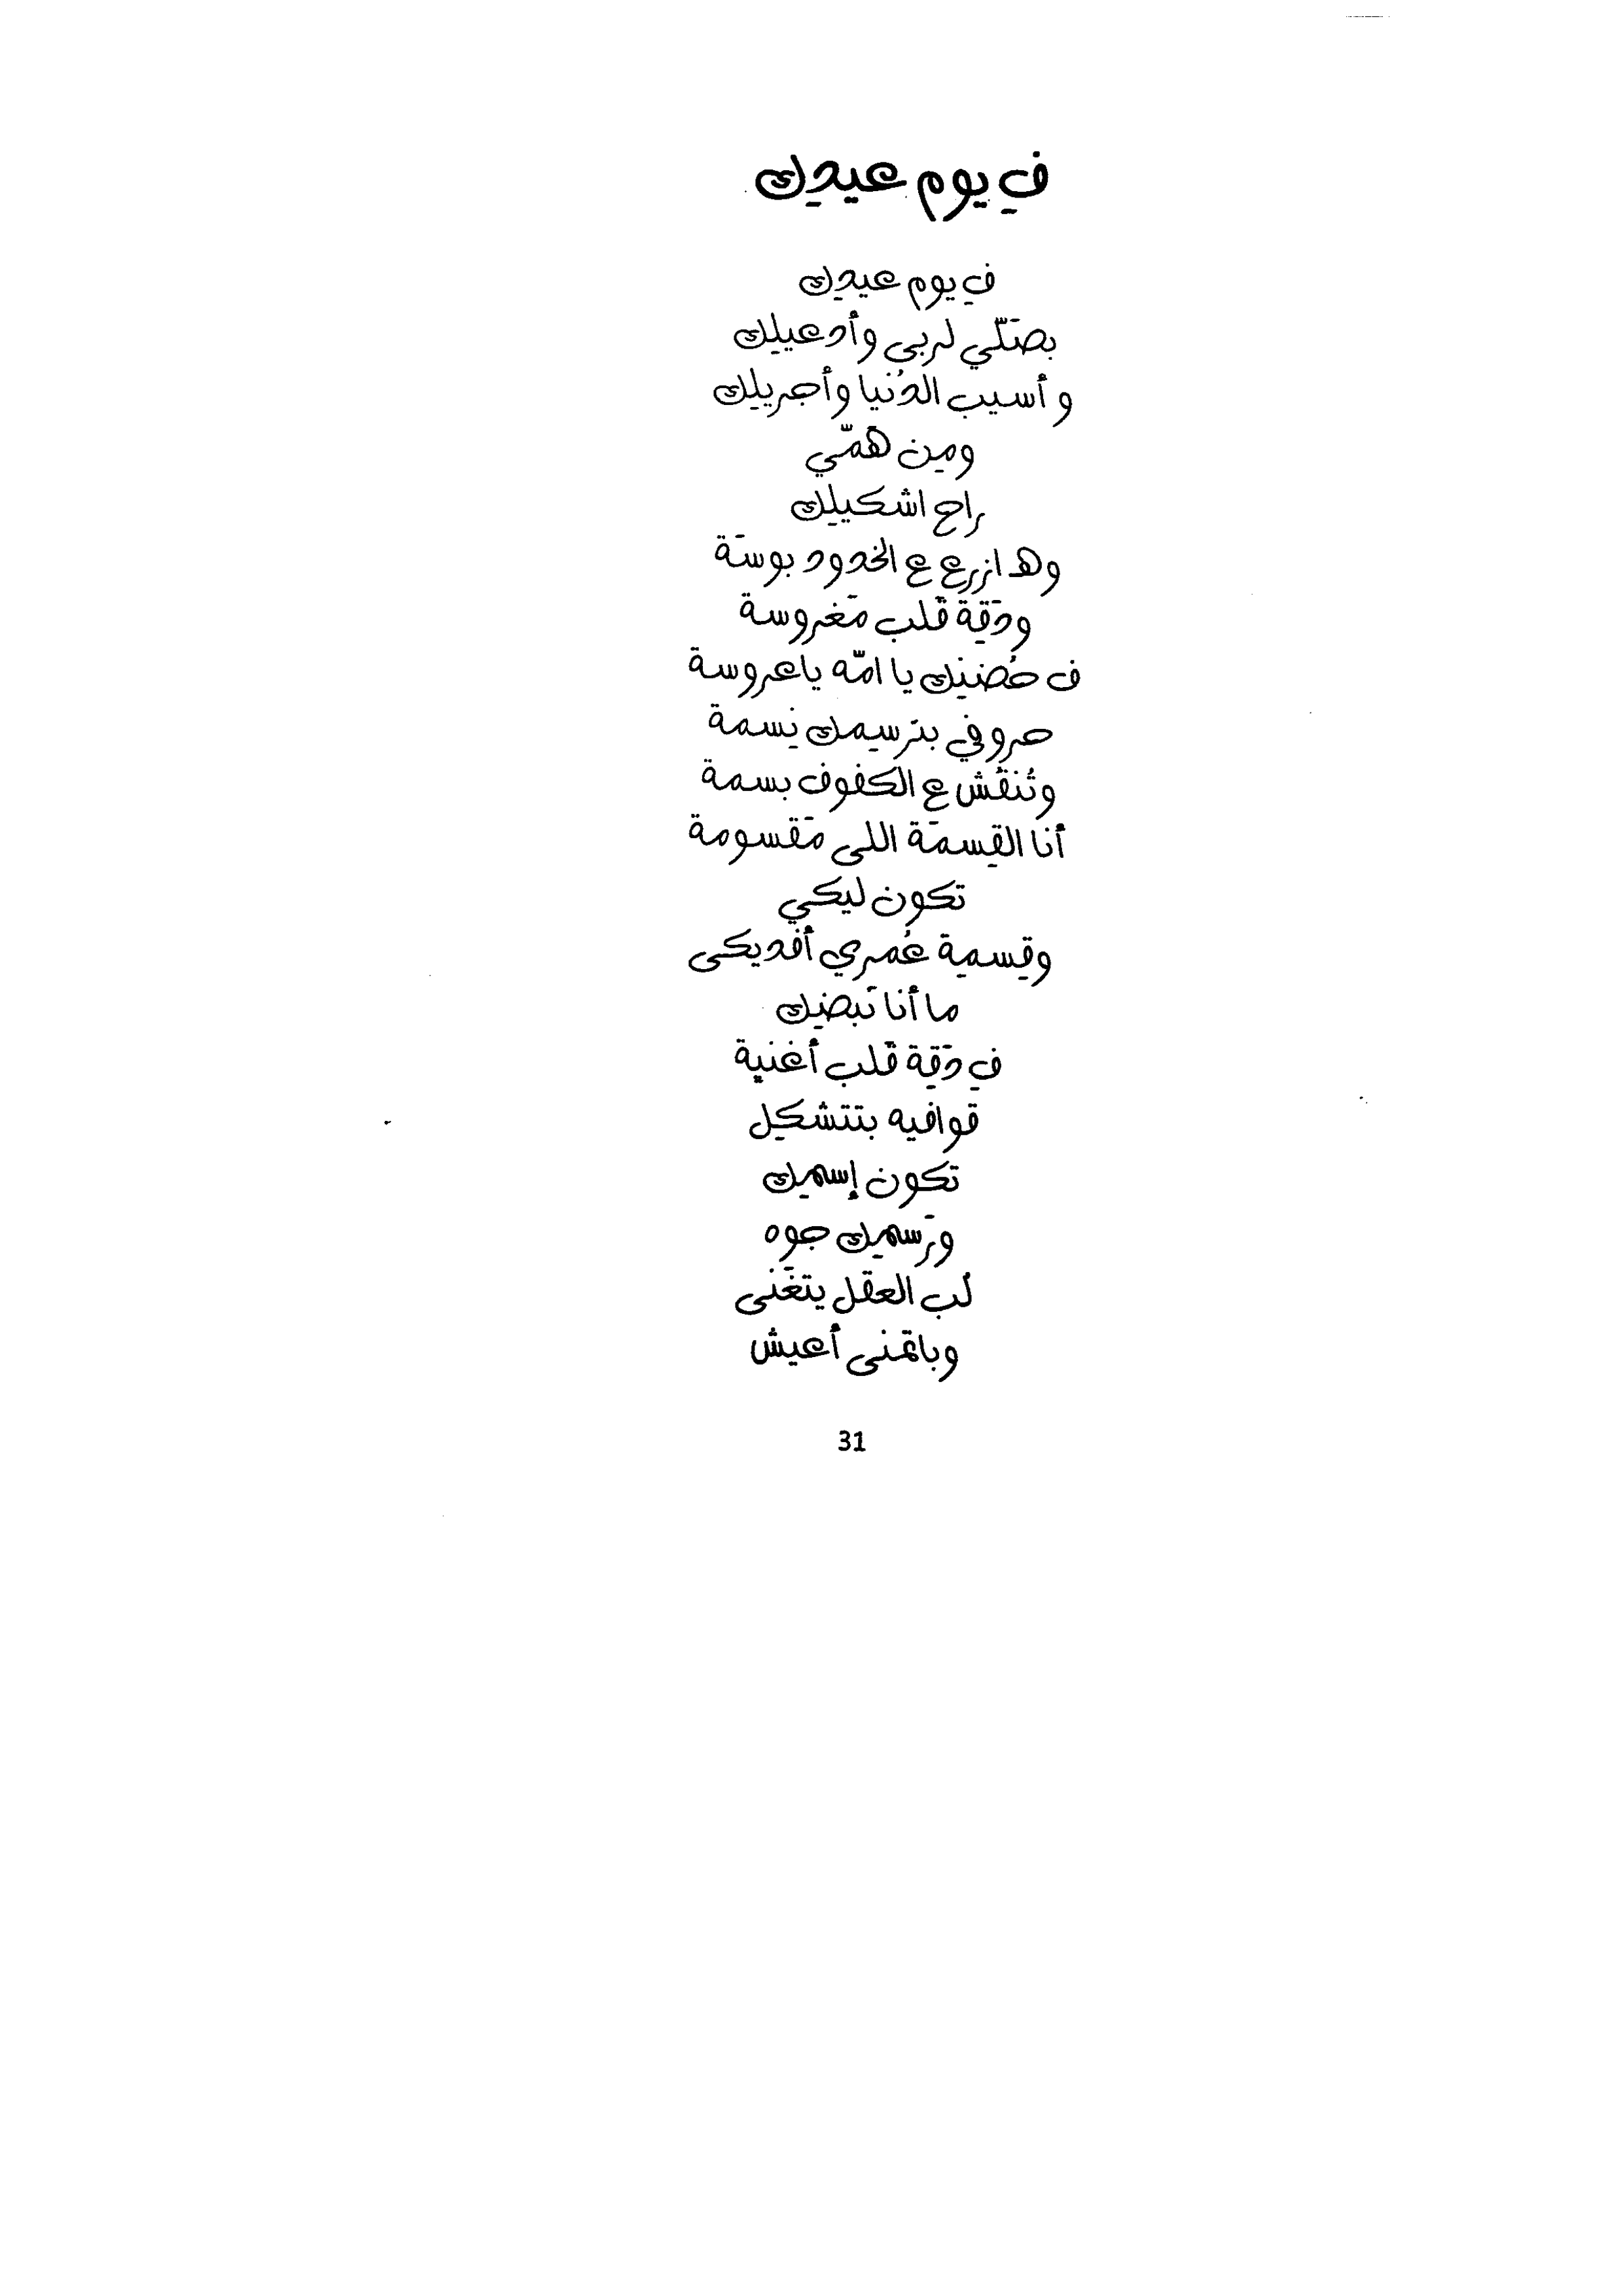 فِ يوم عيدِك
فِ يوم عيدِك
بصَلّي لربى وأدعيلِك
وأسيب الدُنيا وأجريلِك
ومِن هَمّي
راح اشكيلِك
وهـ ازرع ع الخدود بوسَة
ودَقِة قَلب مَغروسة
ف حُضنِك يا امّه ياعروسة
حروفي بترسِمك نِسمة
وتُنقُش ع الكفوف بسمة
أنا القِسمَة اللى مَقسومة
تكون ليكي
وقِسمِة عُمري أفديكى
ما أنا نَبضِك
فِ دَقِة قَلب أغنية
قوافيه بتتشكِل
تكون إسمِك
وتَرسمِك جوه
لُب العقل يتغَنى
وباتمنى أعيش
31